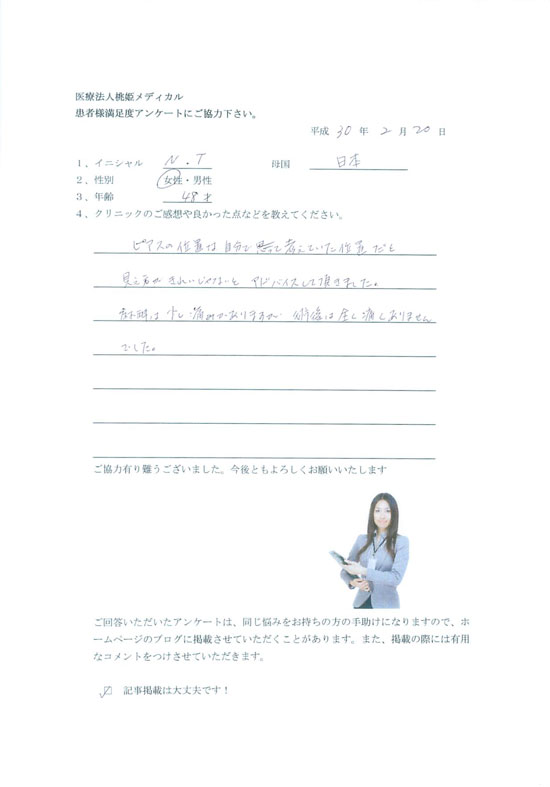 医療法人桃姫メディカル
患者様満足度アンケートにご協力下さい。
平成 30 年 2 月 20 日
1、イニシャル N.T 母国 日本
2、性別 女性・男性
3、年齢 48才
4、クリニックのご感想や良かった点などを教えてください。
ピアスの位置は自分で 考えていた位置だと
見え方がきれいじゃないと アドバイスして頂きました。
は少し痛みがありますが 術後は全く痛くありません
でした。
ご協力有り難うございました。今後ともよろしくお願いいたします
ご回答いただいたアンケートは、同じ悩みをお持ちの方の手助けになりますので、ホ
ームページのブログに掲載させていただくことがあります。また、掲載の際には有用
なコメントをつけさせていただきます。
☑ 記事掲載は大丈夫です！